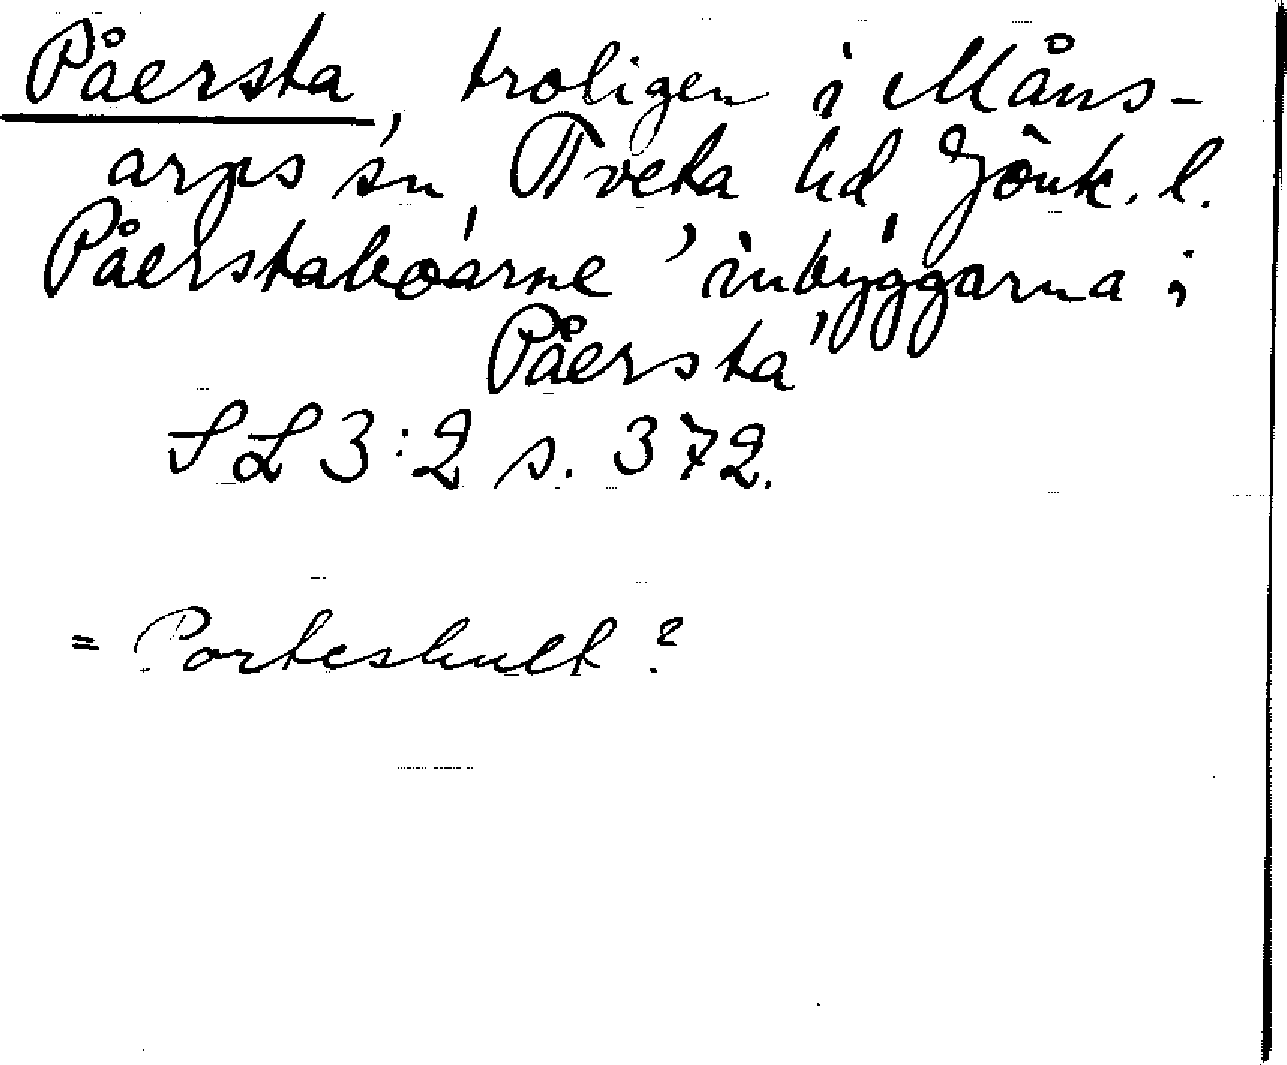 Påersta, troligen i Måns-
arps sn, Tveta hd, Jönk. l.
Påerstaboarne 'inbyggarna i
Påersta'
SL 3:2 s. 372.
= Porteshult?